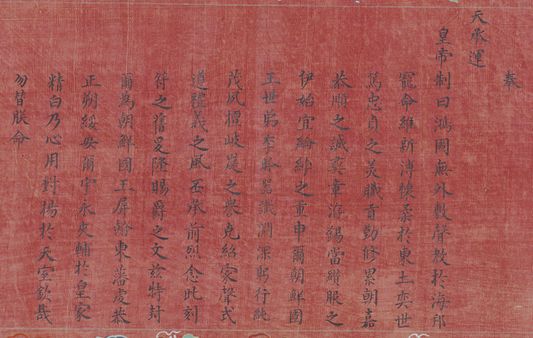 奉
天承運
皇帝制曰鴻圖無外敷聲教於海邦
寵命維新溥懷柔於東土奕世
篤忠貞之美職貢勤修累朝嘉
恭順之誠章洊錫當纘服之
伊始宜綸綍之重申爾朝鮮國
王世弟李昑器識淵深躬行純
茂夙擅岐嶷之譽克紹家聲式
遵禮義之風丕承前烈念此剖
符之舊是隆賜爵之文茲特封
爾為朝鮮國王屏翰東藩虔恭
正朔綏安爾宇永夾輔於皇家
精白乃心用對揚於天室欽哉
勿替朕命